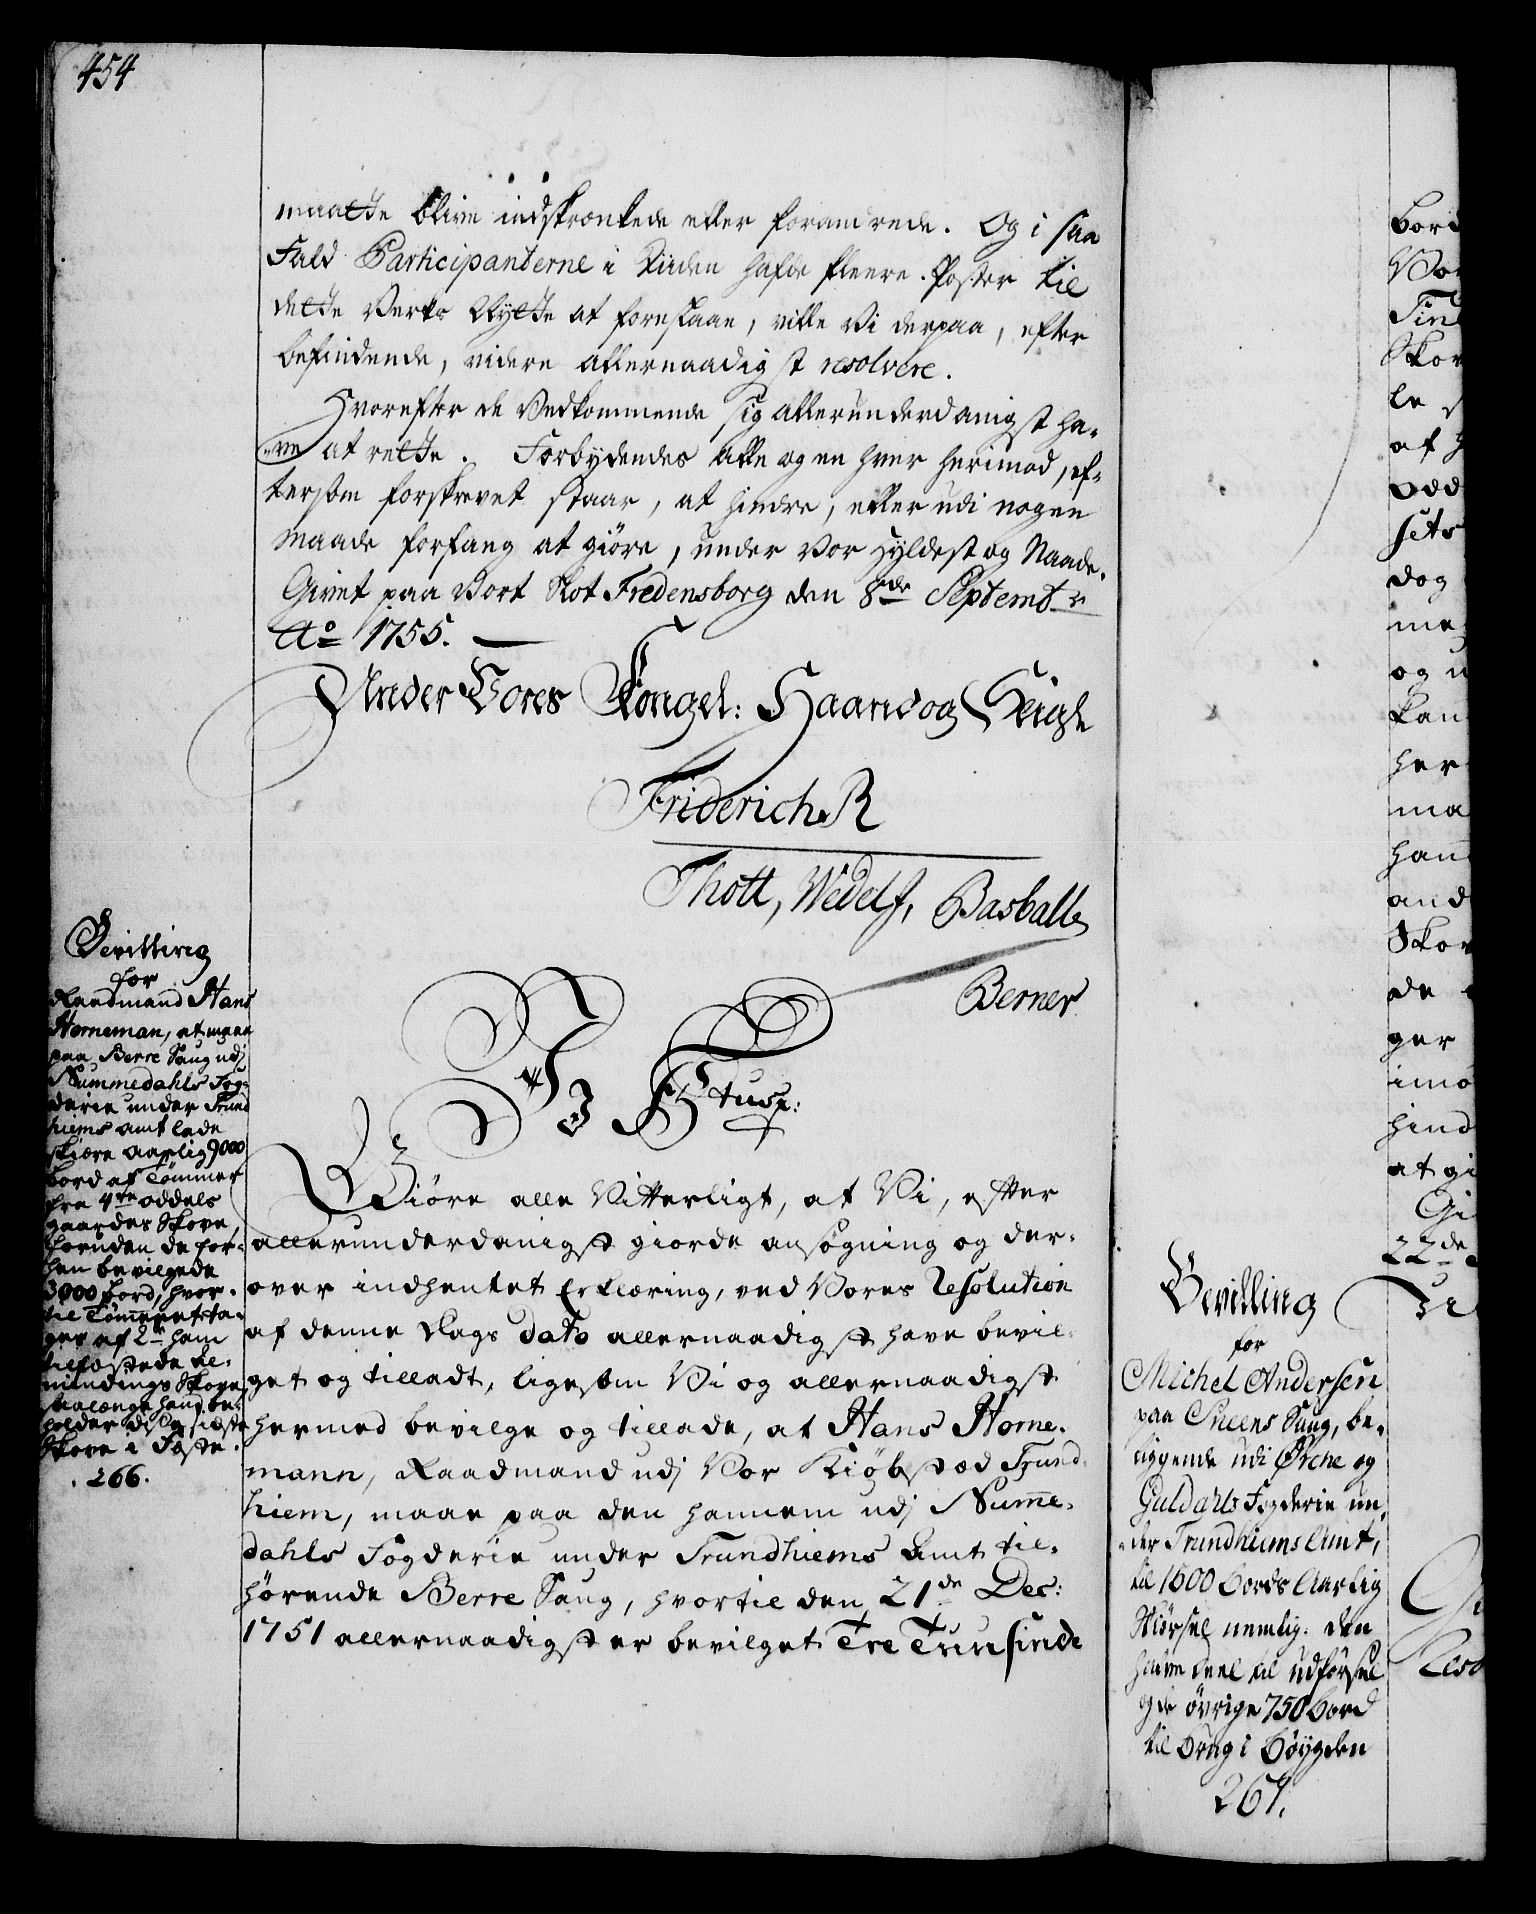 454
maatte blive indskrænkede eller forandrede. Og i saa
Fald Participanterne i Tiiden hafde fleere Poster til
dette Verks Nytte at foreslaae, ville Vi derpaa, efter
befindende, videre allernaadigst resolvere.
Hvorefter de Vedkommende sig allerunderdanigst ha-
ve at rette. Forbydendes alle og en hver herimod, ef-
tersom forskrevet staar, at hindre, eller udi nogen
Maade forfang at giöre, under Vor Hyldest og Naade.
Givet paa Vort Slot Fredensborg den 8de Septembr
Ao 1755.
Under Vores Kongel: Haand og Seigl
Friderich R
Thott, Wedelf, Basballe
Berner
Bevilling
for
Raadmand Hans
Horneman, at maae
paa Berre Saug udj
Nummedahls Fog-
derie under Trund
hiems Amt lade
skiære aarlig 9000
bord af Tömmer
fra 4re oddels
gaardes Skove,
foruden de for-
hen bevilgede
3000 bord, hvor-
til Tömmeret ta-
ges af 2de ham
tilfæstede Al-
mindings Skove,
saalænge hand be-
holder di Og sidste
Skove i Fæste.
266.
V. F. V tusz:
Giöre alle Vitterligt, at Vi, efter
allerunderdanigst giorde ansøgning og der-
over indhentet Erklæring, ved Vores Resolution
af denne Dags dato allernaadigst have bevil-
get og tilladt, ligesom Vi og allernaadigst
hermed bevilge og tillade, at Hans Horne-
mann, Raadmand udj Vor Kiöbstæd Trund-
hiem, maae paa den hannem udj Numme-
dahls Fogderie under Trundhiems Amt til-
hørende Berre Saug, hvortil den 21de Dec:
1751 allernaadigst er bevilget Tre Tuusinde
Bevilling
for
Michel Andersen
paa Sneens Saug, be-
liggende udi Ørche og
Guldahls Fogderie un-
der Trundhiems Amt,
til 1500 bords Aarlig
Skiørsel nemlig: den
halve deel til udførsel
og de övrige 750 bord
til brug i böygden
267.
bord
Vor
Skov
le
af
odd
sets
dog
me
og u
kan
her
ma
hann
and
Skov
de
ger
imo
hind
at gi
Gi
22de